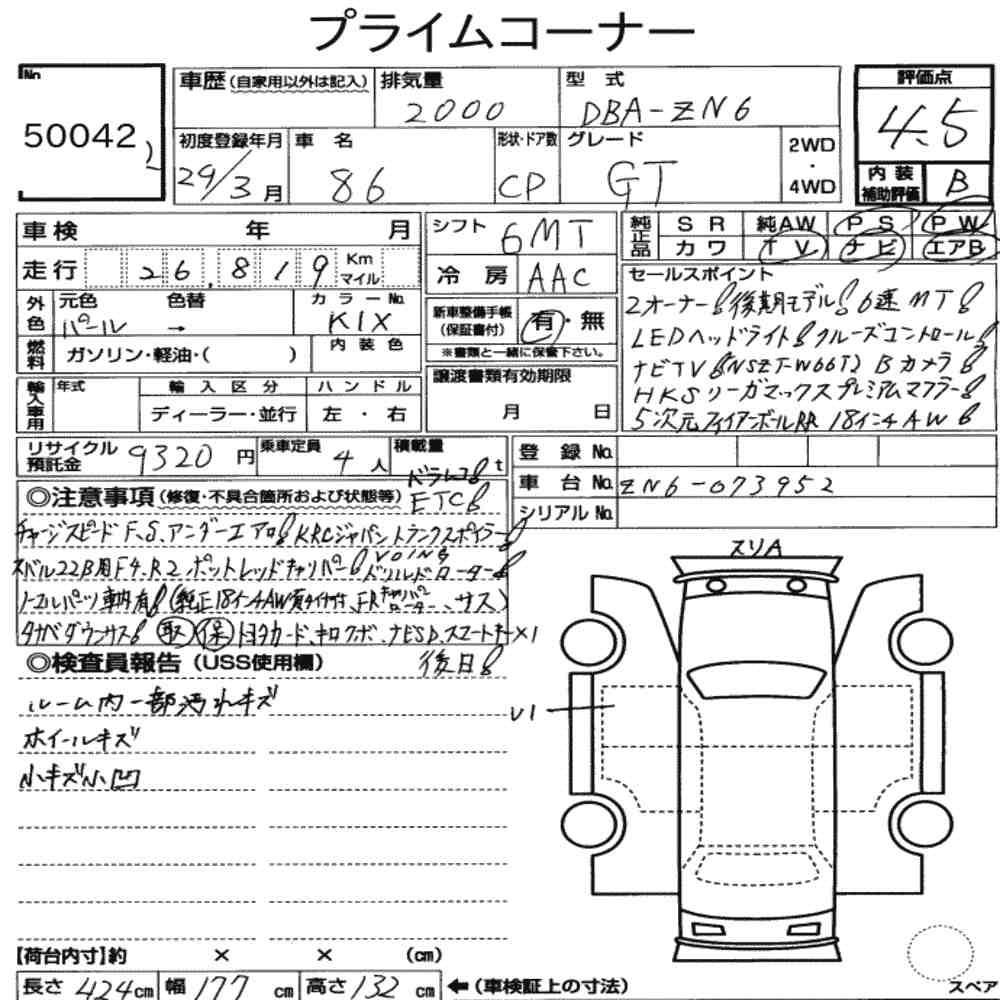 プライムコーナー
No.
50042
車歴 (自家用以外は記入) 排気量 型式
2000 DBA-ZN6
初度登録年月 車名 形状・ドア数 グレード 2WD
・
4WD
29/3月 86 CP GT
評価点
4.5
内装
補助評価 B
車検 年 月
走行 26,819 Km
マイル
外色 元色 色替 カラーNo.
パール → K1X
燃料 ガソリン・軽油・( ) 内装色
輸入車用 年式 輸入区分 ハンドル
ディーラー・並行 左・右
シフト 6MT
冷房 AAC
新車整備手帳
(保証書付) 有・無
※書類と一緒に保管下さい。
譲渡書類有効期限
月 日
純正品 SR 純AW PS PW
カワ TV ナビ エアB
セールスポイント
2オーナー! 後期モデル! 6速MT!
LEDヘッドライト! クルーズコントロール!
ナビTV! (NSZT-W66T) Bカメラ!
HKSリーガマックスプレミアムマフラー!
5次元ファイアーボールRR 18インチAW!
リサイクル
預託金 9320円 乗車定員 4人 積載量 t
登録No.
車台No. ZN6-073952
シリアルNo.
◎注意事項(修復・不具合箇所および状態等)
ドラレコ!
ETC!
チャージスピードF、S、アンダーエアロ! KRCジャパントランクスポイラー!
スバル22B用F4、R2ポットレッドキャリパー! ドリルドローター!
ノーマルパーツ車内有! (純正18インチAW 付、FRキャリパーローター、サス)
タナベダウンサス! 取 保 トヨタカード、キロクボ、ナビSD、スマートキー×1
後日!
◎検査員報告(USS使用欄)
ルーム内一部汚れキズ
ホイールキズ
小キズ小凹
スリA
U1
【荷台内寸】約 × × (cm)
長さ 424cm 幅 177cm 高さ 132cm ←(車検証上の寸法)
スペア